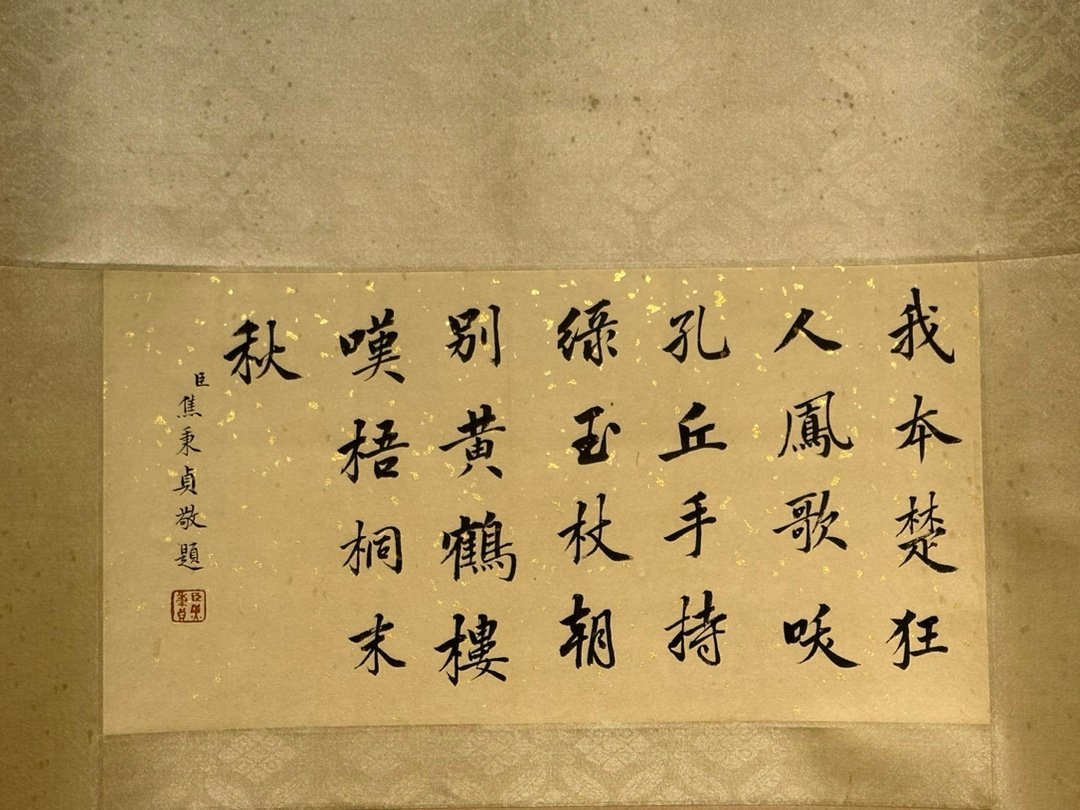 我本楚狂
人鳳歌唉
孔丘手持
綠玉杖朝
別黃鶴樓
嘆梧桐末
秋
臣焦秉貞敬題